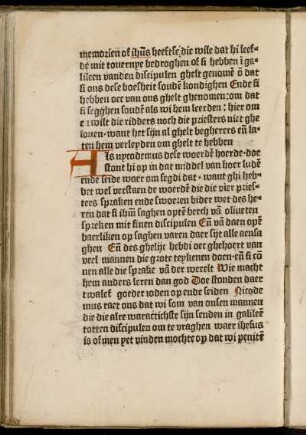 memorien of ihūs heefste, die wise dat hi leef-
de mit tovernye bedroghen of si hebben ī ga-
lileen vanden discipulen ghelt genomē ō dat
si ons dese boesheit soudē kondighen Ende si
hebben oec van ons ghelt ghenomen: om dat
si segghen soudē als wi hem leerden: hier om
en wilt die ridders noch die priesters niet ghe
loven. want het sijn al ghelt begherers eñ la-
ten hem verleyden om ghelt te hebben
Als nycodemus dese woerdē hoerde. doe
stont hi op in dat middel van hoer ludē
ende seide waer om segdi dat. want ghi heb-
bet wel verstaen de woerdē die die vier pries-
ters spraken ende swoeren bider wet des he-
ren dat si ihm̄ saghen optē berch vā oliveten
spreken mit sinen discipulen Eñ vā daen opē
baerliken op saghen varen daer sijt alle aensa
ghen Eñ des ghelijc hebdi oec ghehoert van
veel mannen die grote teykenen doen. eñ si cō
nen alle die sprake vā der werelt Wie macht
hem anders leren dan god Doe stonden daer
twalef goeder joden op ende seiden Nicode
mus raet ons dat wi som van onsen mannen
die die alre warachtichste sijn senden in galileē
totten discipulen om te vraghen waer ihesus
is of men yet vinden mochte op dat wi penitē